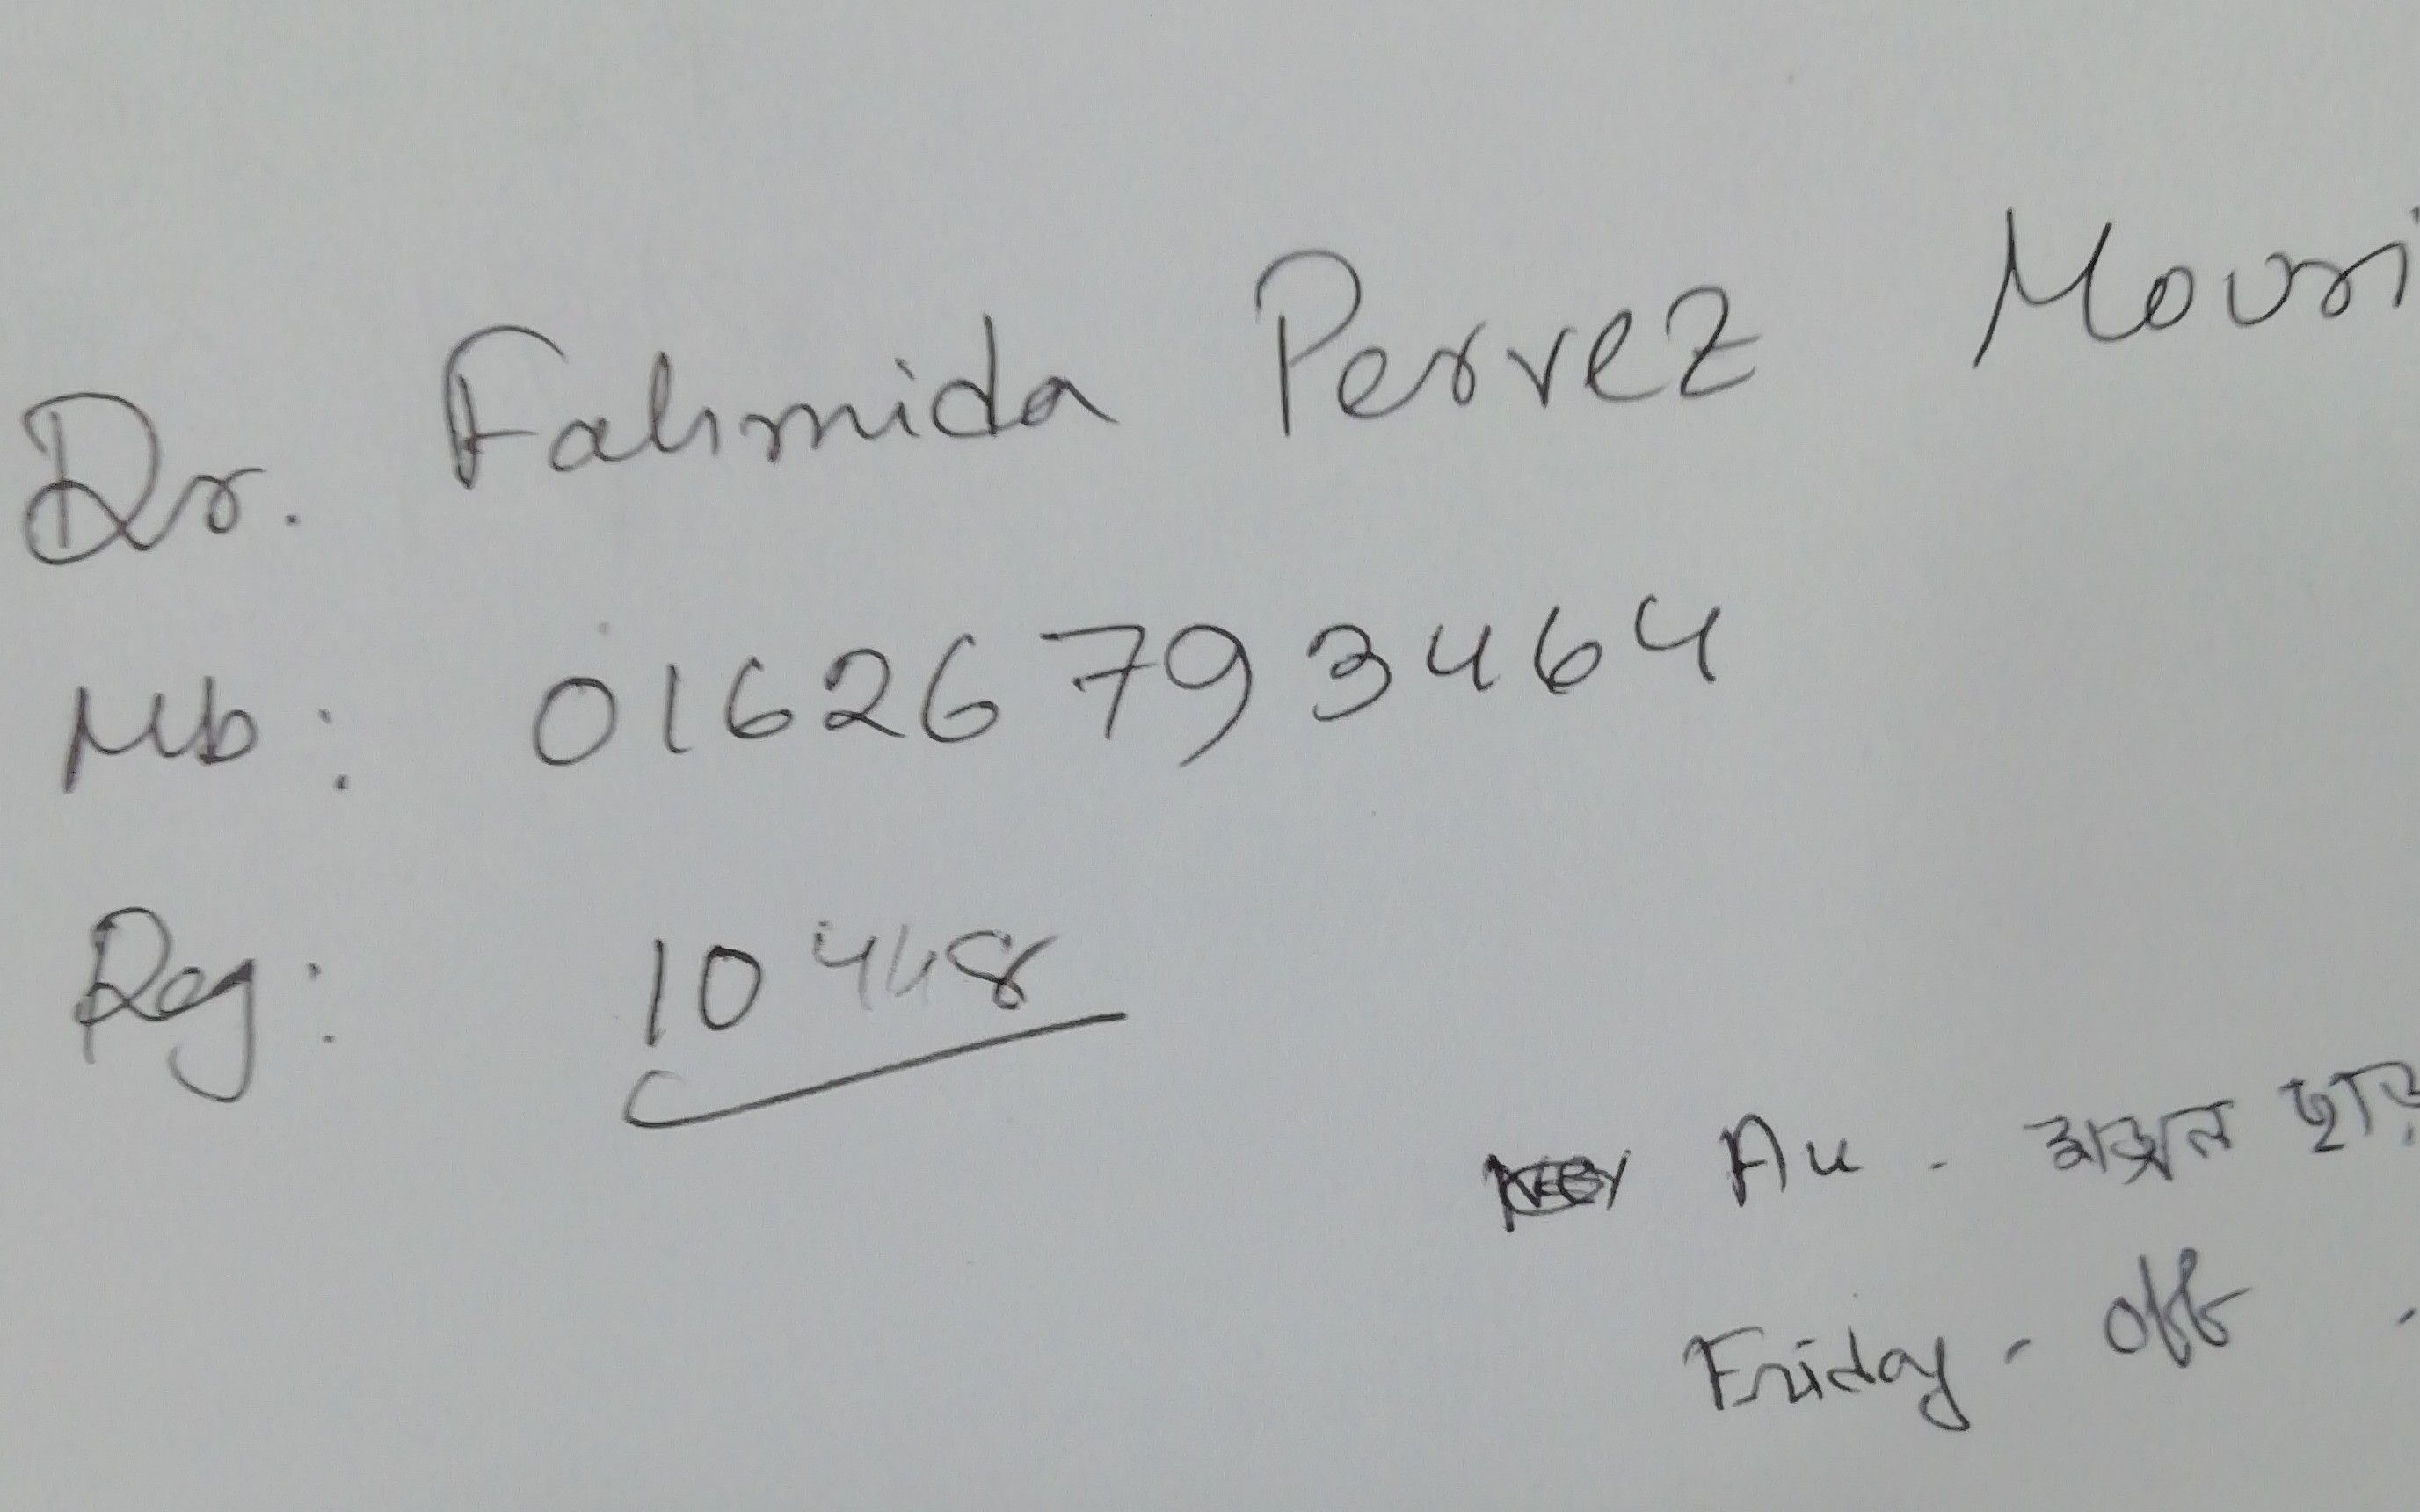 Dr. Fahmida Pervez Mouri
Mb: 01626793464
Reg: 10448
Friday - off